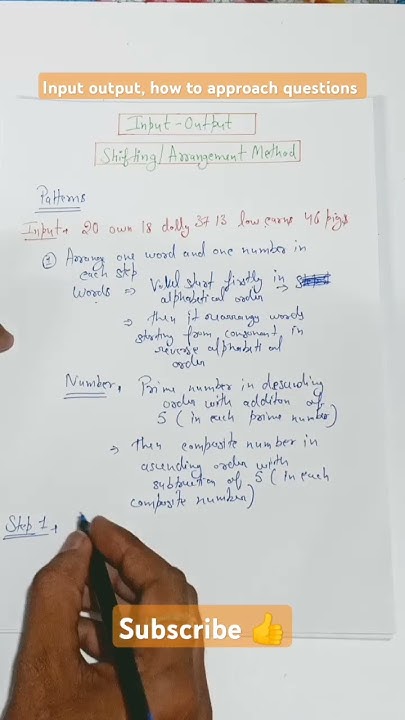 Input output, how to approach questions
Input-Output
Shifting/Arrangement Method
Patterns
Input → 20 own 18 dolly 37 13 low earns 46 pigs
① Arrange one word and one number in
each step
Words ⇒ Vowel start firstly in →
alphabetical order
→ then it rearrange words
starting from consonant in
reverse alphabetical
order
Number → Prime number in descending
order with additon of
5 (in each prime number)
→ Then composite number in
ascending order with
subtraction of 5 (in each
composite number)
Step 1 →
Subscribe 👍